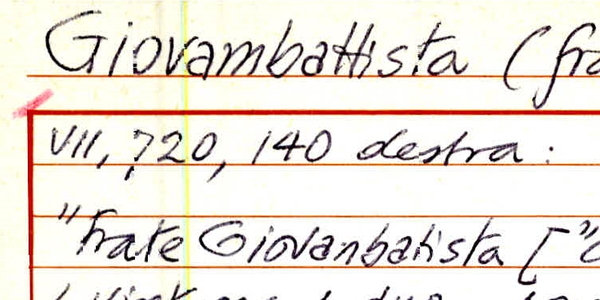 Giovambattista (fra
VII, 720, 140 destra:
"Frate Giovanbatista ["